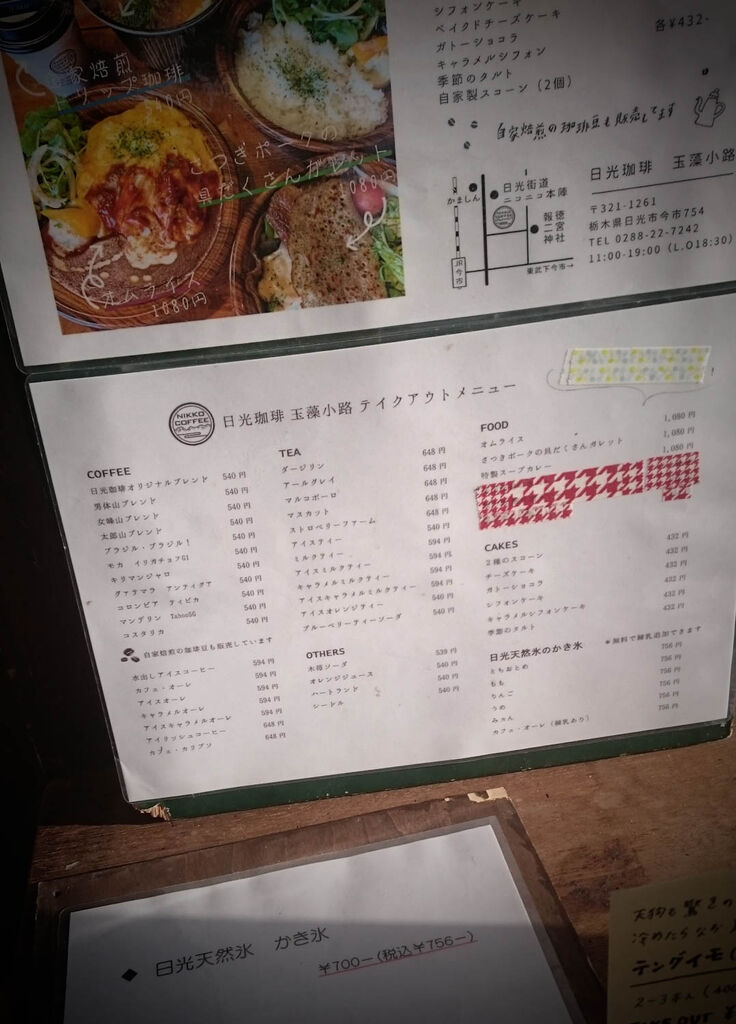 シフォンケーキ
ベイクドチーズケーキ
ガトーショコラ
キャラメルシフォン
季節のタルト
自家製スコーン（2個）
各¥432-
自家焙煎の珈琲豆も販売してます
自家焙煎
ドリップ珈琲
540円
さつきポークの
具だくさんガレット
1080円
オムライス
1080円
かましん
日光街道
ニコニコ本陣
報徳
二宮
神社
JR今市
東武下今市→
日光珈琲 玉藻小路
〒321-1261
栃木県日光市今市754
TEL 0288-22-7242
11:00-19:00 (L.O18:30)
NIKKO
COFFEE
日光珈琲 玉藻小路 テイクアウトメニュー
COFFEE
日光珈琲オリジナルブレンド 540円
男体山ブレンド 540円
女峰山ブレンド 540円
太郎山ブレンド 540円
ブラジル・ブラジル！ 540円
モカ イリガチョフG1 540円
キリマンジャロ 540円
グァテマラ アンティグア 540円
コロンビア ティピカ 540円
マンデリン TabooSG 540円
コスタリカ 540円
自家焙煎の珈琲豆も販売しています
水出しアイスコーヒー 594円
カフェ・オーレ 594円
アイスオーレ 594円
キャラメルオーレ 594円
アイスキャラメルオーレ 594円
アイリッシュコーヒー 648円
カフェ・カリプソ 648円
TEA
ダージリン 648円
アールグレイ 648円
マルコポーロ 648円
マスカット 648円
ストロベリーファーム 648円
アイスティー 540円
ミルクティー 594円
アイスミルクティー 594円
キャラメルミルクティー 594円
アイスキャラメルミルクティー 594円
アイスオレンジティー 540円
ブルーベリーティーソーダ 540円
OTHERS
木苺ソーダ 539円
オレンジジュース 540円
ハートランド 540円
シードル 540円
FOOD
オムライス 1,080円
さつきポークの具だくさんガレット 1,080円
特製スープカレー 1,080円
CAKES
2種のスコーン 432円
チーズケーキ 432円
ガトーショコラ 432円
シフォンケーキ 432円
キャラメルシフォンケーキ 432円
季節のタルト 432円
日光天然氷のかき氷 ＊無料で練乳追加できます
とちおとめ 756円
もも 756円
りんご 756円
うめ 756円
みかん 756円
カフェ・オーレ（練乳あり） 756円
◆ 日光天然氷 かき氷
¥700-(税込¥756-)
天狗も驚きの
冷めたらなお
テングイモ
2-3本入